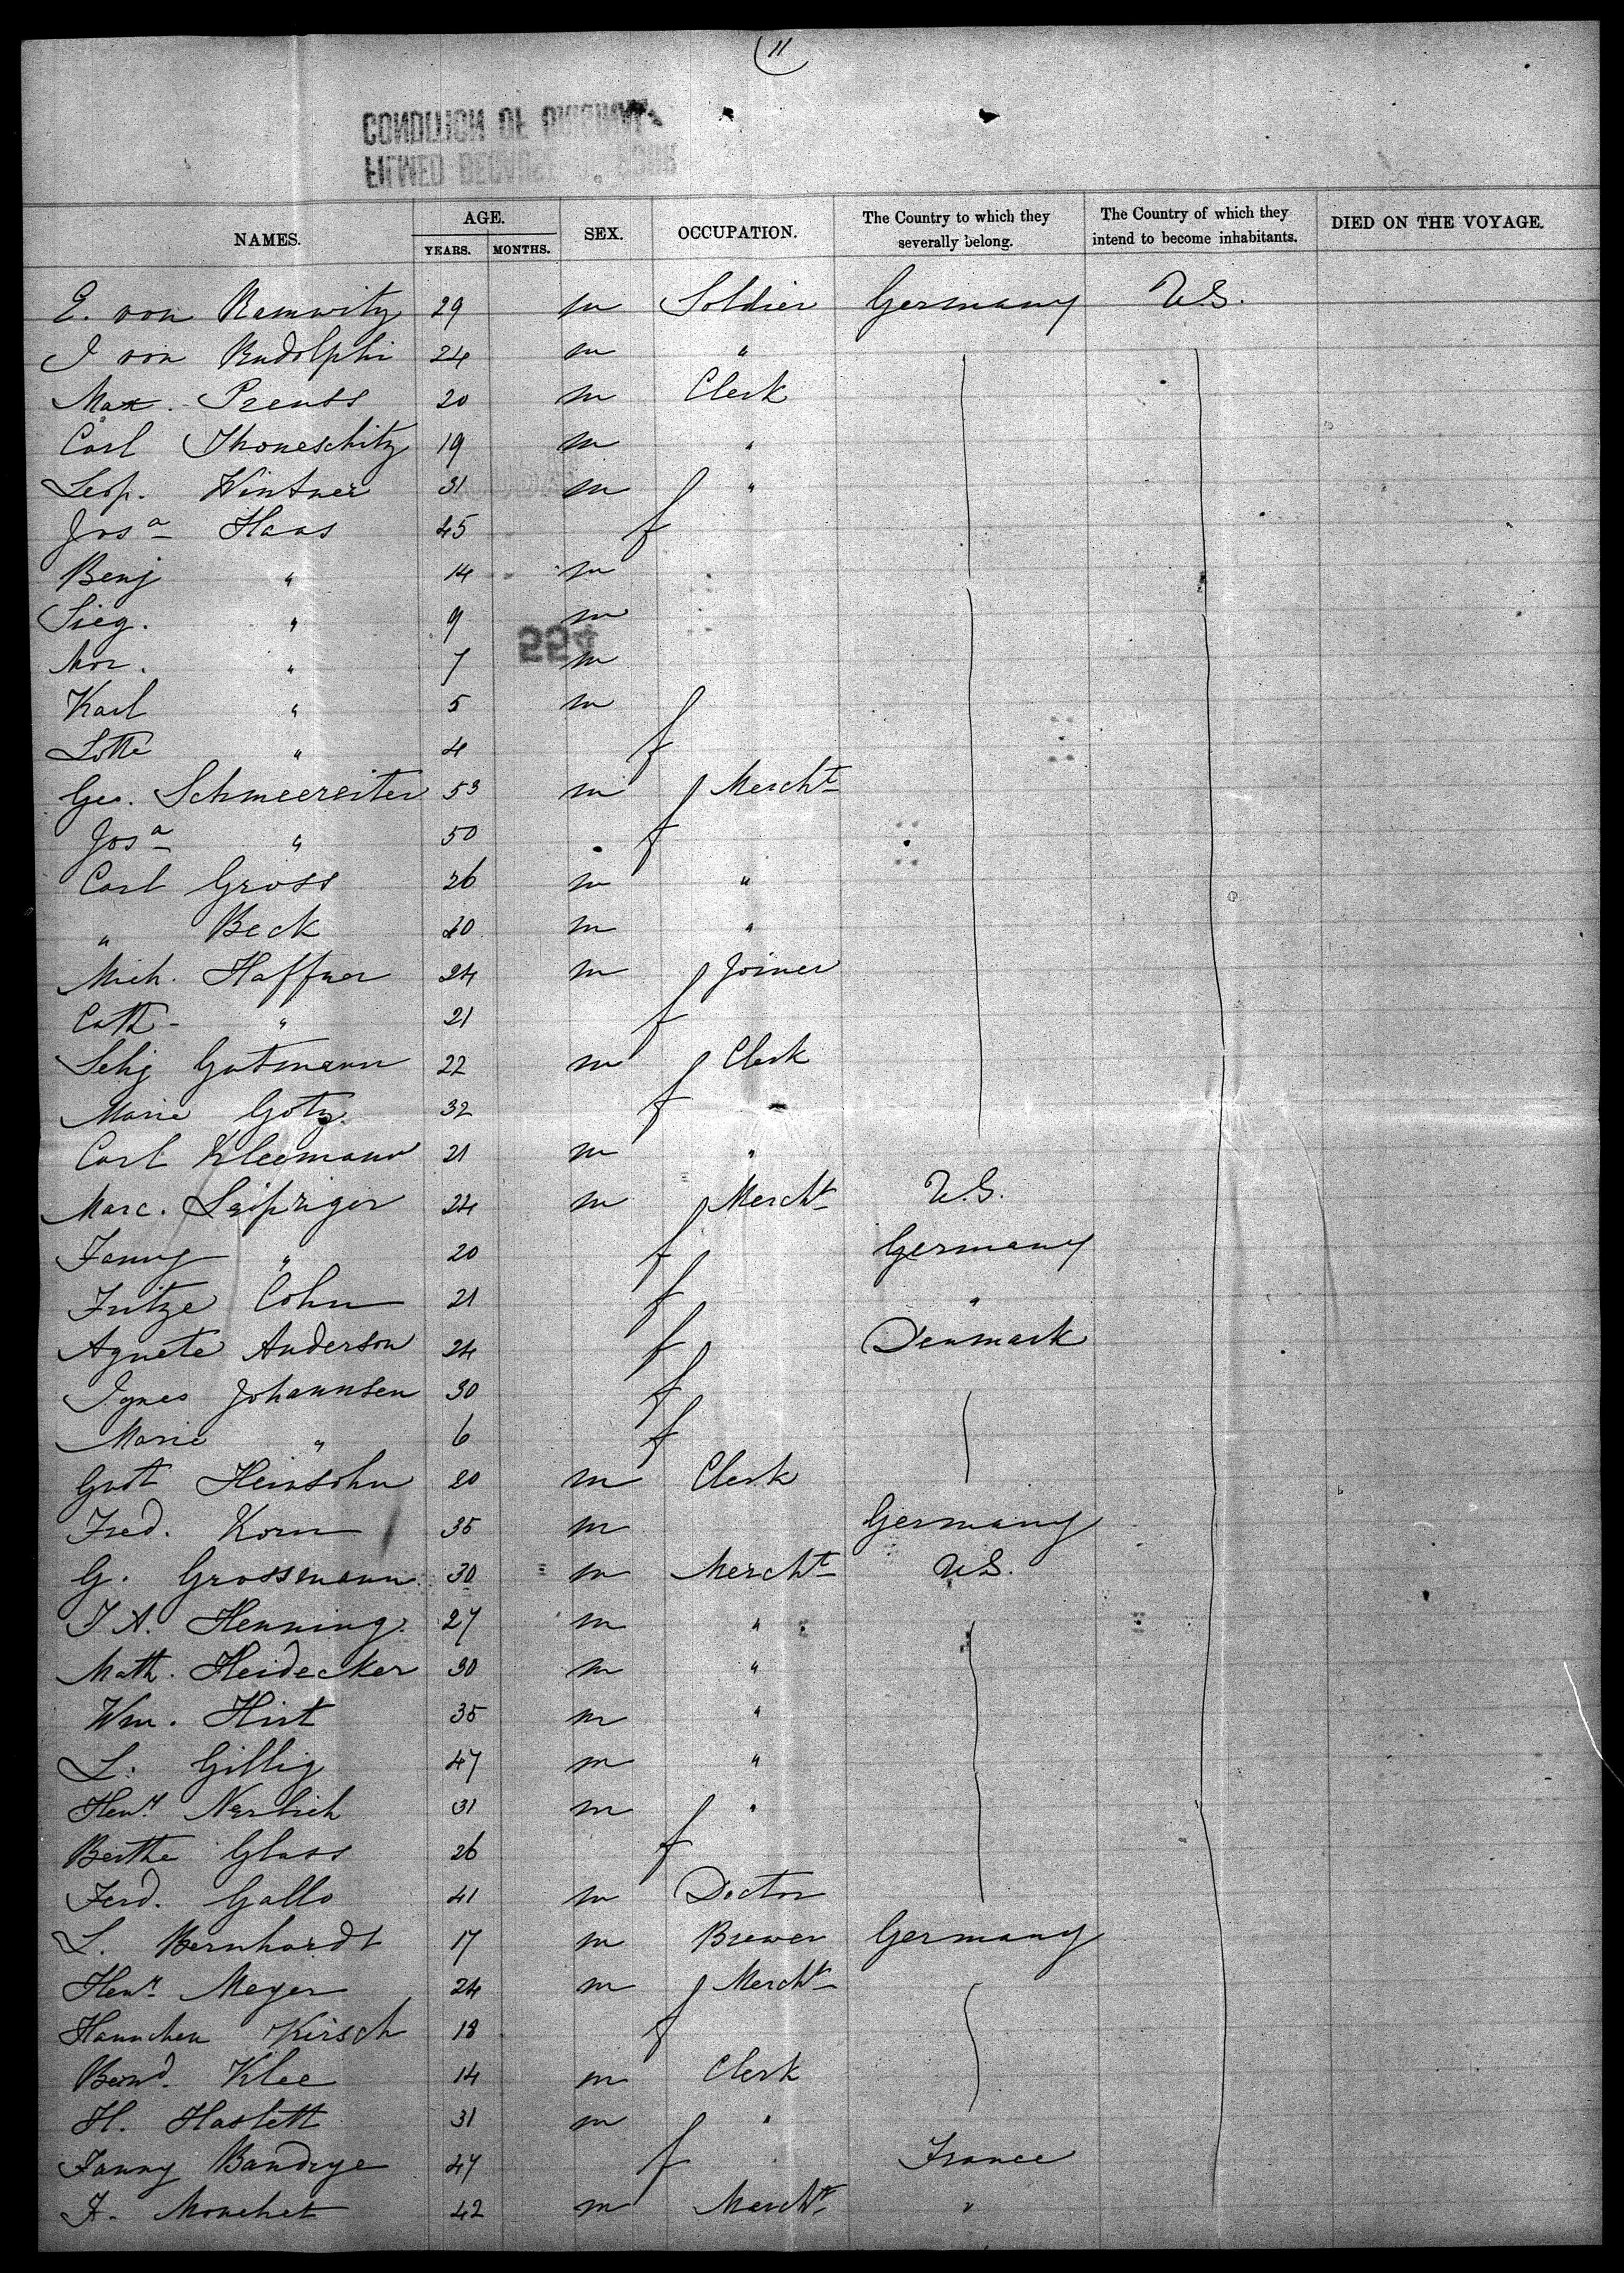 11
NAMES. AGE. YEARS. MONTHS. SEX. OCCUPATION. The Country to which they severally belong. The Country of which they intend to become inhabitants. DIED ON THE VOYAGE.
E. von 29 m Soldier Germany U.S.
J von Rudolphi 24 m "
Max. Preuss 20 m Clerk
Carl Thoneschitz 19 m "
Leop. Wintner 31 m "
Josa Haas 45 f
Benj " 14 m
Sieg. " 9 m
554
Mor. " 7 m
Karl " 5 m
Lotte " 4 f
Geo. Schmeereiter 53 m Mercht
Josa " 50 f
Carl Gross 26 m "
" Beck 20 m "
Mich. Haffner 24 m Joiner
Cath " 21 f
Selig Gutmann 22 m Clerk
Marie Gotz 32 f
Carl Kleemann 21 m "
Marc. Leipziger 24 m Mercht U.S.
Fanny " 20 f Germany
Fritze Cohn 21 f "
Agnete Anderson 24 f Denmark
Johannsen 30 f
Marie " 6 f
Gust Heinsohn 20 m Clerk
Fred. Korn 35 m Germany
G. Grossmann 30 m Mercht U.S.
J A. Henning 27 m "
Math. Heidecker 30 m "
Wm. Hirt 35 m "
L. Gillig 47 m "
Heny Nerlich 31 m "
Berthe Glass 26 f
Ferd. Gallo 41 m Doctor
L. Bernhardt 17 m Brewer Germany
Heny Meyer 24 m Mercht
Hannchen Kirsch 18 f
Bernd. Klee 14 m Clerk
H. Haslett 31 m "
Fanny 47 f France
F. Monchet 42 m Mercht "